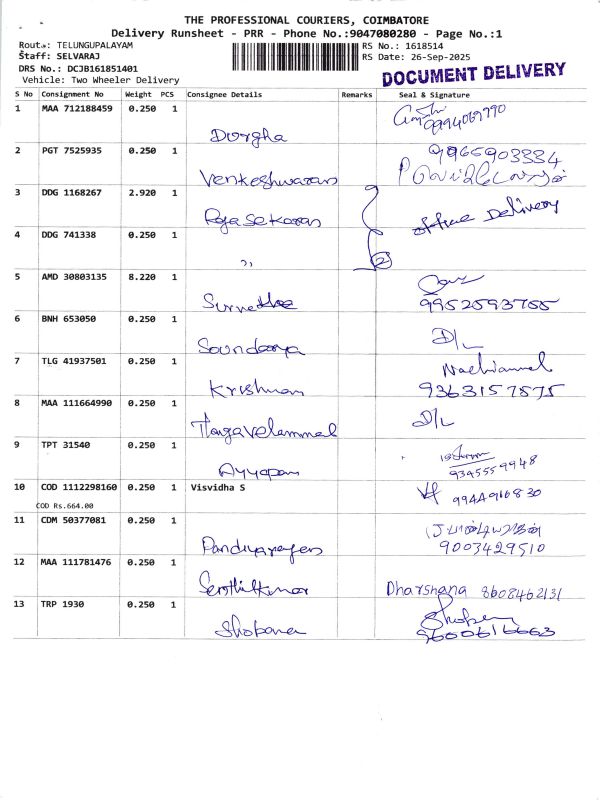 THE PROFESSIONAL COURIERS, COIMBATORE
Delivery Runsheet - PRR - Phone No.:9047080280 - Page No.:1
Route: TELUNGUPALAYAM RS No.: 1618514
Staff: SELVARAJ RS Date: 26-Sep-2025
DRS No.: DCJB161851401
Vehicle: Two Wheeler Delivery
DOCUMENT DELIVERY
S No Consignment No Weight PCS Consignee Details Remarks Seal & Signature
1 MAA 712188459 0.250 1
Dorgha
2 PGT 7525935 0.250 1 9965903334
Venkeshwaran
3 DDG 1168267 2.920 1
Rajasekaran office Delivery
4 DDG 741338 0.250 1
,, 2
5 AMD 30803135 8.220 1
9952593755
6 BNH 653050 0.250 1
Soundarya D/L
7 TLG 41937501 0.250 1
Krishnan 9363157875
8 MAA 111664990 0.250 1 D/L
Thangavelammal
9 TPT 31540 0.250 1
Ayyapan 9345559948
10 COD 1112298160 0.250 1 Visvidha S 9944916830
COD Rs.664.00
11 CDM 50377081 0.250 1
9003429510
12 MAA 111781476 0.250 1
Senthilkumar Dharshana 8608462131
13 TRP 1930 0.250 1
Shobana 9600616663